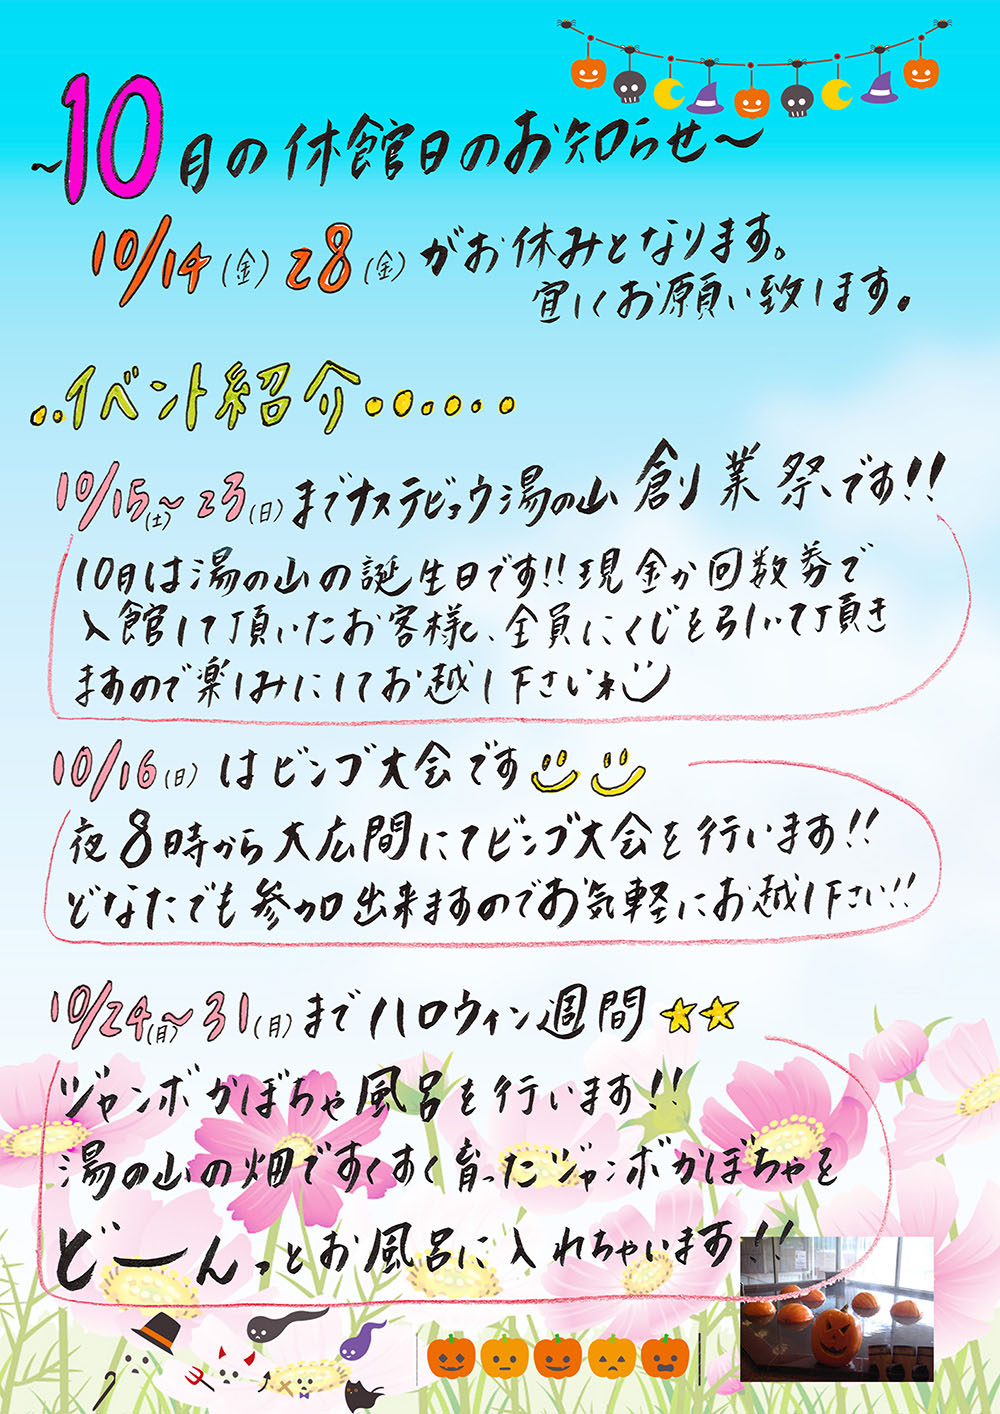 ~10月の休館日のお知らせ~
10/14(金) 28(金)がお休みとなります。
宜しくお願い致します。
..イベント紹介......
10/15(土)~23(日)までナステビュウ湯の山 創業祭です!!
10月は湯の山の誕生日です!!現金か回数券で
入館して頂いたお客様に、全員にくじを引いて頂き
ますので楽しみにしてお越し下さいね
10/16(日)はビンゴ大会です
夜8時から大広間にてビンゴ大会を行います!!
どなたでも参加出来ますのでお気軽にお越し下さい!!
10/24(月)~31(月)までハロウィン週間☆☆
ジャンボかぼちゃ風呂を行います!!
湯の山の畑ですくすく育ったジャンボかぼちゃを
どーんっとお風呂に入れちゃいます!!